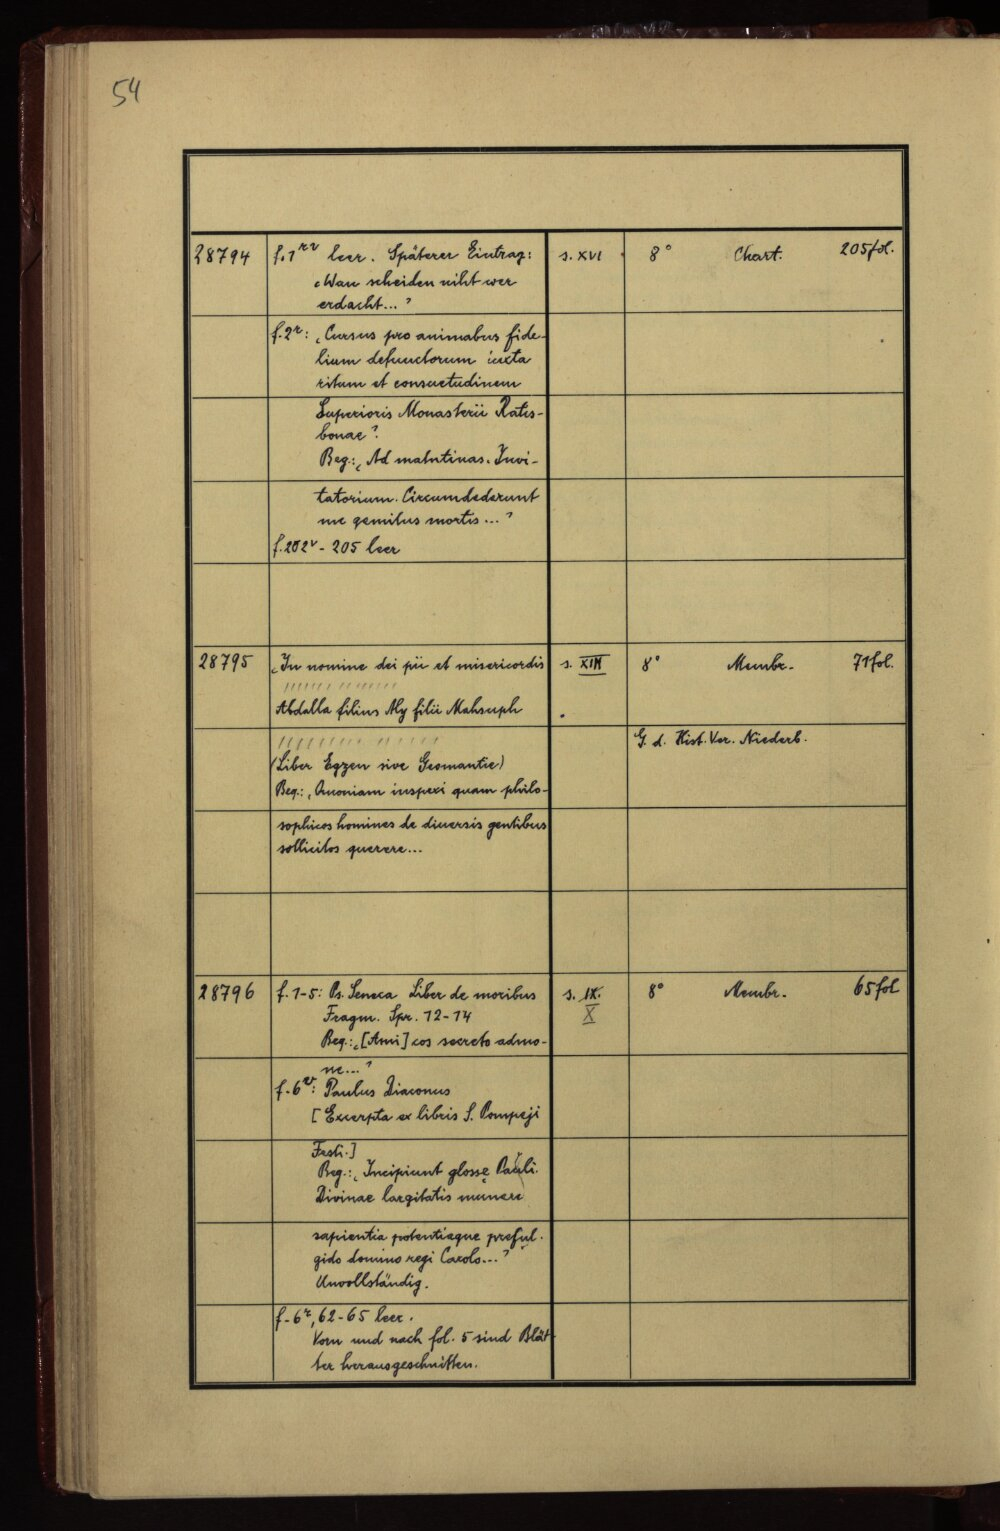 54
28794 f. 1rv leer. Späterer Eintrag: s. XVI 8° Chart. 205 fol.
‚Wan scheiden niht wer
erdacht...‘
f. 2r: ‚Cursus pro animabus fide-
lium defunctorum iuxta
ritum et consuetudinem
Superioris Monasterii Ratis-
bonae‘.
Beg.: ‚Ad matutinas. Invi-
tatorium. Circumdederunt
me gemitus mortis...‘
f. 202v - 205 leer
28795 ‚In nomine dei pii et misericordis s. XIII 8° Membr. 71 fol.
Abdalla filius Aly filii Mahsuph
G. d. Hist. Ver. Niederb.
(Liber Egzen sive Geomantie)
Beg.: ‚Quoniam inspexi quam philo-
sophicos homines de diuersis gentibus
sollicitos querere...
28796 f. 1-5: Ps. Seneca Liber de moribus s. IX. 8° Membr. 65 fol
Fragm. Spr. 12-14 X
Beg.: ‚[Ami]cos secreto admo-
ne...‘
f. 6v: Paulus Diaconus
[Excerpta ex libris S. Pompeji
Festi.]
Beg.: ‚Incipiunt glossę Pauli.
Divinae largitatis munere
sapientia potentiaque preful-
gido domino regi Carolo...‘
Unvollständig.
f. 6r, 62-65 leer.
Vorn und nach fol. 5 sind Blät-
ter herausgeschnitten.